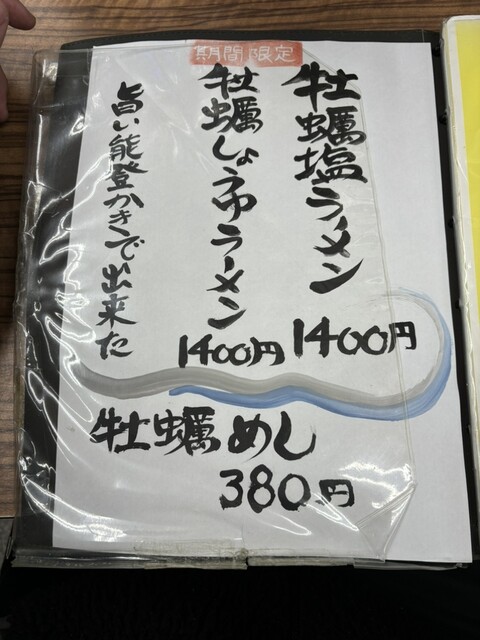 期間限定
牡蠣塩ラーメン
1400円
牡蠣しょうゆラーメン
1400円
旨い能登かきで出来た
牡蠣めし
380円